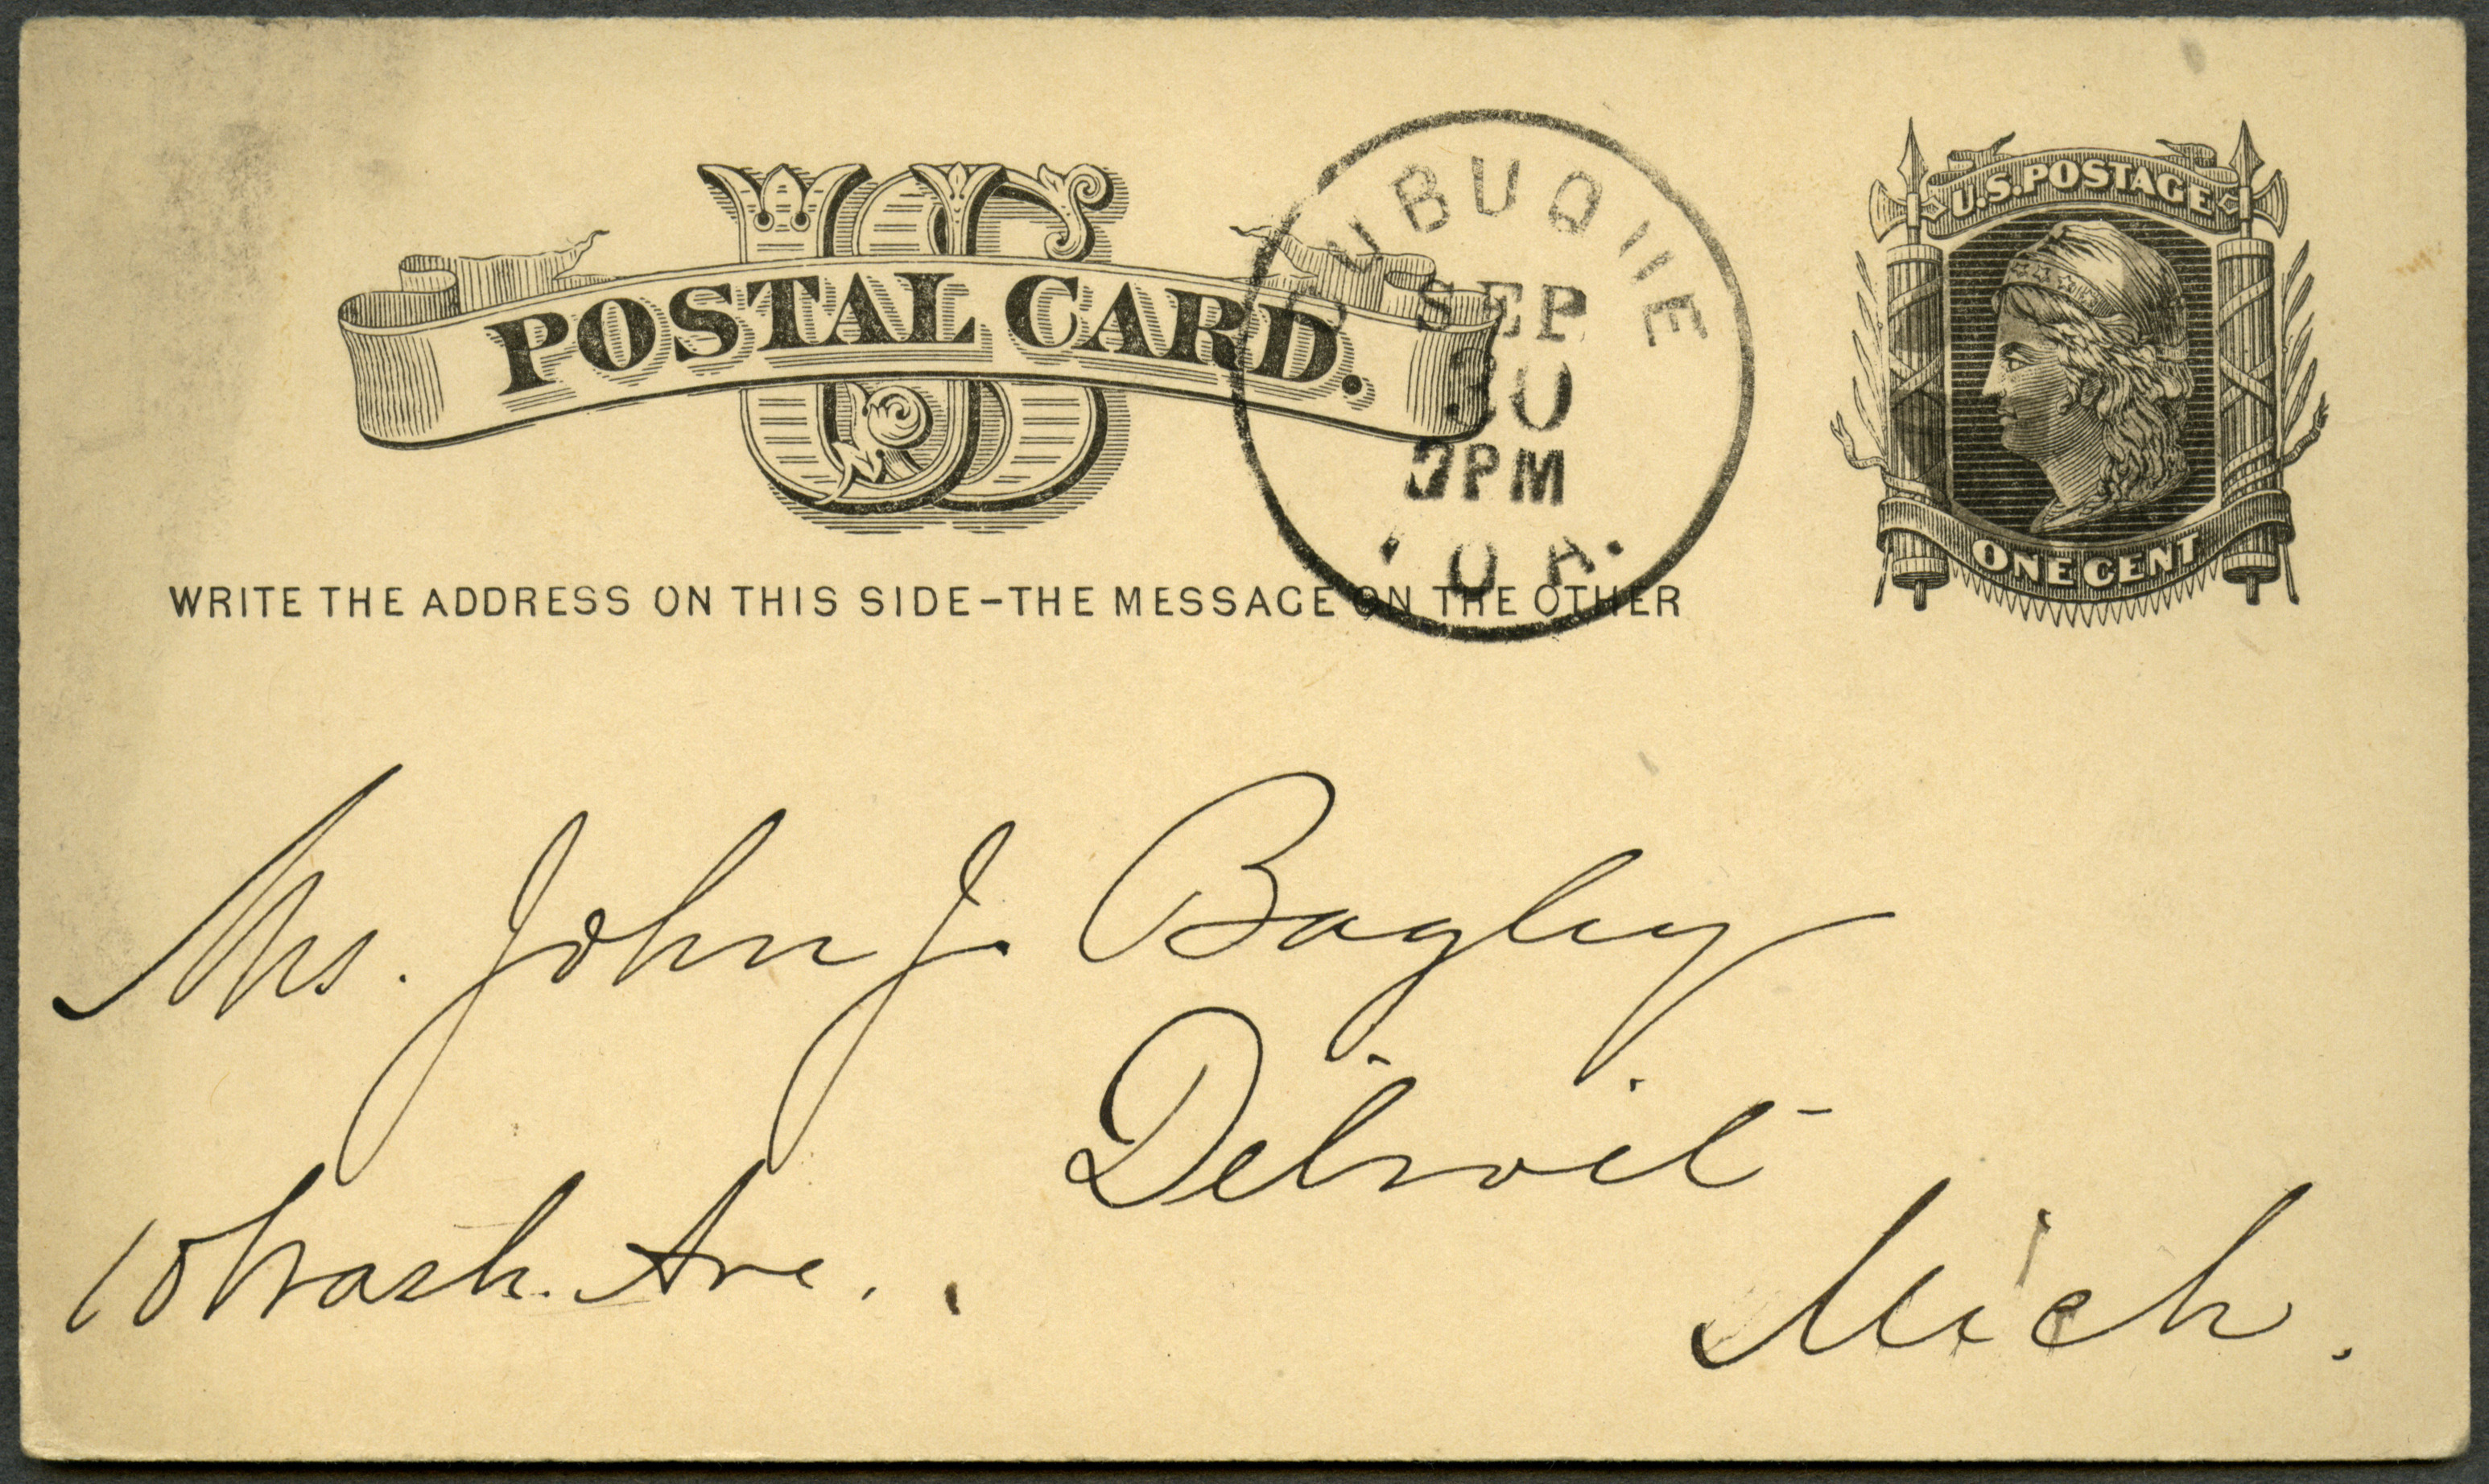 US
POSTAL CARD.
WRITE THE ADDRESS ON THIS SIDE–THE MESSAGE ON THE OTHER
DUBUQUE
SEP
30
7PM
IOA.
U.S. POSTAGE
ONE CENT
Mrs. John J. Bagley
Detroit
10 Wash. Ave.
Mich.